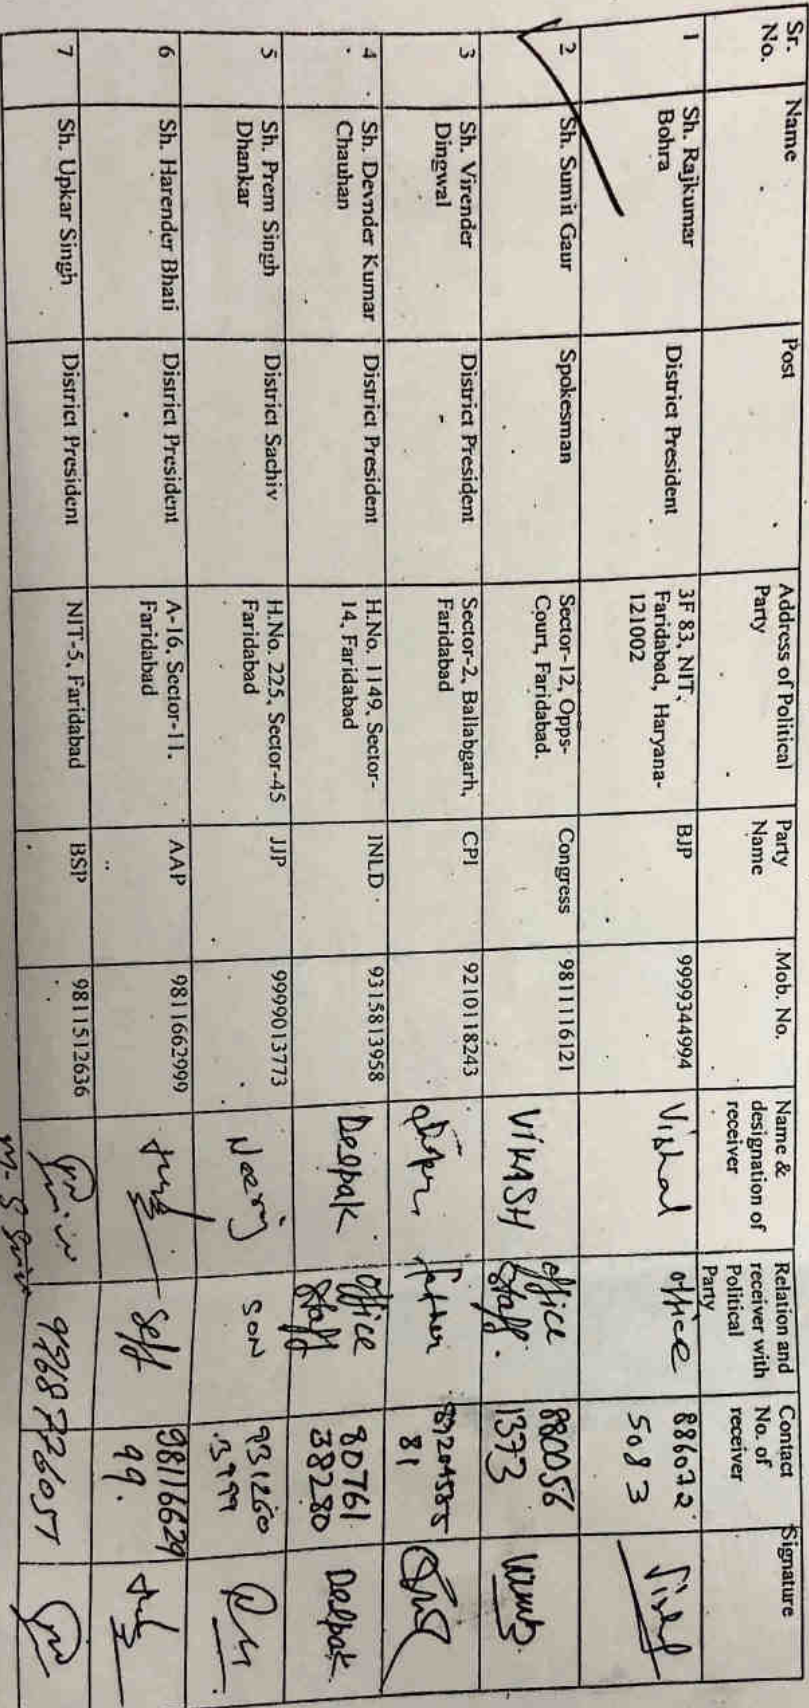 Sr. No. Name Post Address of Political Party Party Name Mob. No. Name & designation of receiver Relation and receiver with Political Party Contact No. of receiver Signature
1 Sh. Rajkumar Bohra District President 3F 83, NIT, Faridabad, Haryana-121002 BJP 9999344994 Vishal office 886072 5083
2 Sh. Sumit Gaur Spokesman Sector-12, Opps-Court, Faridabad. Congress 9811116121 VIKASH office staff. 880056 1373
3 Sh. Virender Dingwal District President Sector-2, Ballabgarh, Faridabad CPI 9210118243 father 81
4 Sh. Devnder Kumar Chauhan District President H.No. 1149, Sector-14, Faridabad INLD 9315813958 Deepak office staff 80761 38280 Deepak
5 Sh. Prem Singh Dhankar District Sachiv H.No. 225, Sector-45 Faridabad JJP 9999013773 Neeraj SON 931260 3999
6 Sh. Harender Bhati District President A-16, Sector-11, Faridabad AAP 9811662999 Self 98116629 99.
7 Sh. Upkar Singh District President NIT-5, Faridabad BSP 9811512636